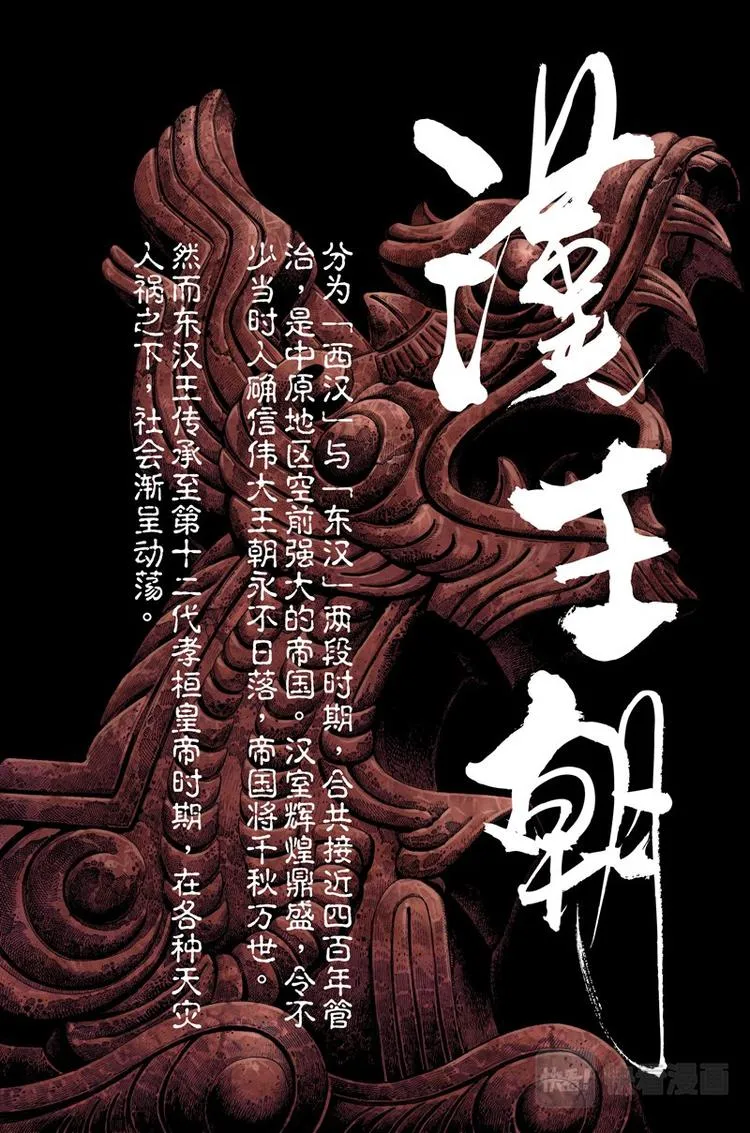 漢王朝
分为「西汉」与「东汉」两段时期，合共接近四百年管
治，是中原地区空前强大的帝国。汉室辉煌鼎盛，令不
少当时人确信伟大王朝永不日落，帝国将千秋万世。
然而东汉王传承至第十二代孝桓皇帝时期，在各种天灾
人祸之下，社会渐呈动荡。
快看!
快看漫画